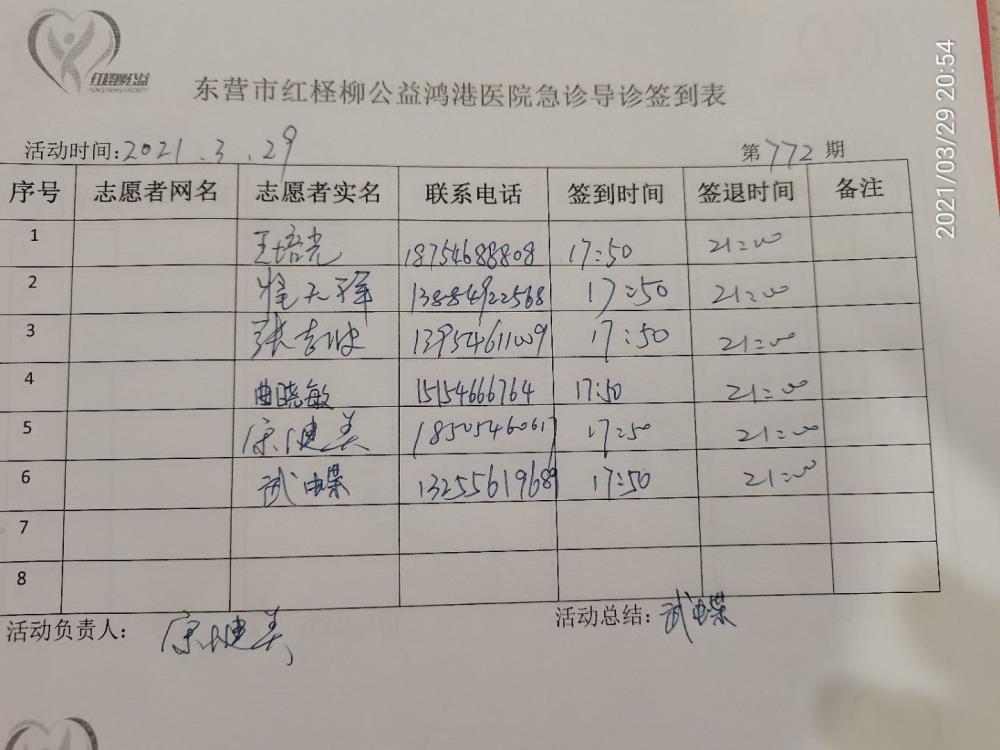 红柽柳公益
东营市红柽柳公益鸿港医院急诊导诊签到表
2021/03/29 20:54
活动时间:2021.3.29 第772期
序号 志愿者网名 志愿者实名 联系电话 签到时间 签退时间 备注
1 王培光 18754688808 17:50 21:00
2 13884922568 17:50 21:00
3 张吉波 13954611009 17:50 21:00
4 曲晓敏 15154666764 17:50 21:00
5 宗健美 18505460617 17:50 21:00
6 武蝶 13255619689 17:50 21:00
7
8
活动负责人: 宗健美 活动总结: 武蝶